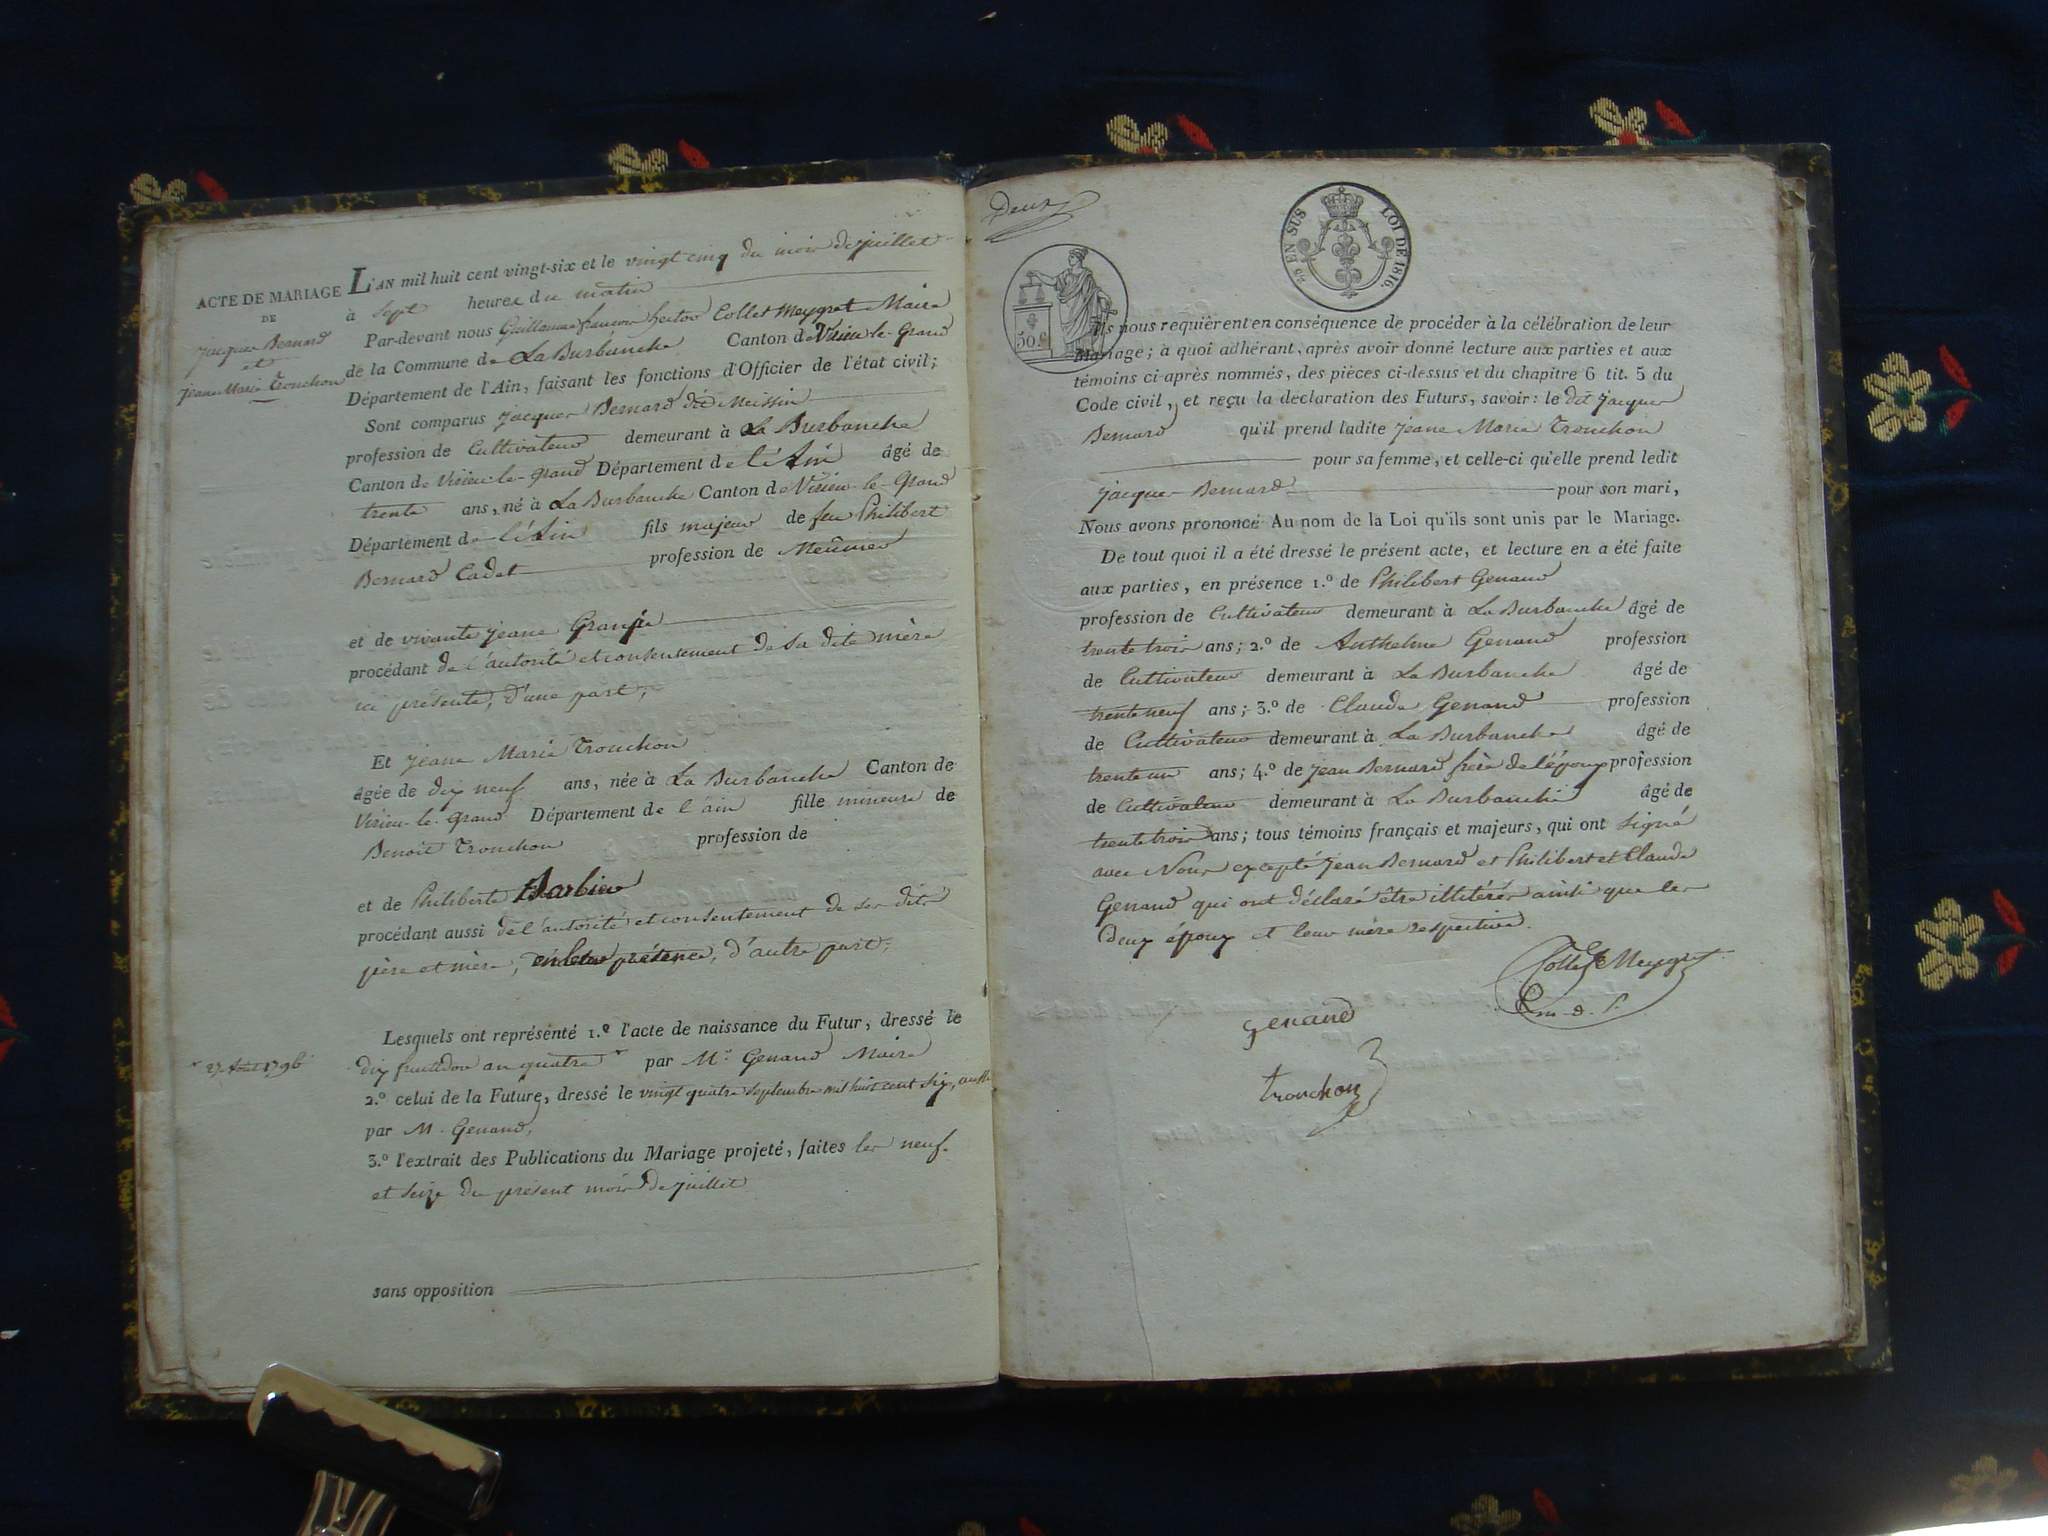 ACTE DE MARIAGE
DE
Jacques Bernard
et
Jeane Marie Tronchon
L'AN mil huit cent vingt-six et le vingt cinq du mois de juillet
à sept heures du matin
Par-devant nous Guillaume françois hector Collet Meygret Maire
de la Commune de La Burbanche Canton de Virieu-le-Grand
Département de l'Ain, faisant les fonctions d'Officier de l'état civil;
Sont comparus Jacques Bernard dit Meissin
profession de Cultivateur demeurant à La Burbanche
Canton de Virieu-le-Grand Département de l'Ain âgé de
trente ans, né à La Burbanche Canton de Virieu-le-Grand
Département de l'Ain fils majeur de feu Philibert
Bernard Cadet profession de Meûnier
et de vivante Jeane Granjie
procédant de l'autorité et consentement de sa dite mère
ici présente, d'une part;
Et Jeane Marie Tronchon
âgée de dix neuf ans, née à La Burbanche Canton de
Virieu-le-Grand Département de l'ain fille mineure de
Benoît Tronchon profession de
et de Philiberte Barbier
procédant aussi de l'autorité et consentement de ses dits
père et mère, en leur présence, d'autre part;
Lesquels ont représenté 1.º l'acte de naissance du Futur, dressé le
* 27 Août 1796
dix fructidor an quatre * par Mr. Genaud Maire
2.º celui de la Future, dressé le vingt quatre septembre mil huit cent six, aussi
par M. Genaud,
3.º l'extrait des Publications du Mariage projeté, faites les neuf
et seize du présent mois de juillet
sans opposition
Deux
EN SUS LOI DE 1816.
50 c
Ils nous requièrent en conséquence de procéder à la célébration de leur
Mariage; à quoi adhérant, après avoir donné lecture aux parties et aux
témoins ci-après nommés, des pièces ci-dessus et du chapitre 6 tit. 5 du
Code civil, et reçu la déclaration des Futurs, savoir: le dit Jacques
Bernard qu'il prend ladite Jeane Marie Tronchon
pour sa femme, et celle-ci qu'elle prend ledit
Jacques Bernard pour son mari,
Nous avons prononcé Au nom de la Loi qu'ils sont unis par le Mariage.
De tout quoi il a été dressé le présent acte, et lecture en a été faite
aux parties, en présence 1.º de Philibert Genaud
profession de Cultivateur demeurant à La Burbanche âgé de
trente trois ans; 2.º de Anthelme Genaud profession
de Cultivateur demeurant à La Burbanche âgé de
trente neuf ans; 3.º de Claude Genaud profession
de Cultivateur demeurant à La Burbanche âgé de
trente un ans; 4.º de Jean Bernard frère de l'époux profession
de Cultivateur demeurant à La Burbanche âgé de
trente trois ans; tous témoins français et majeurs, qui ont signé
avec Nous excepté Jean Bernard et Philibert et Claude
Genaud qui ont déclaré être illitérés ainsi que les
deux époux et leur mère respective.
Collet Meygret
genaud
tronchon